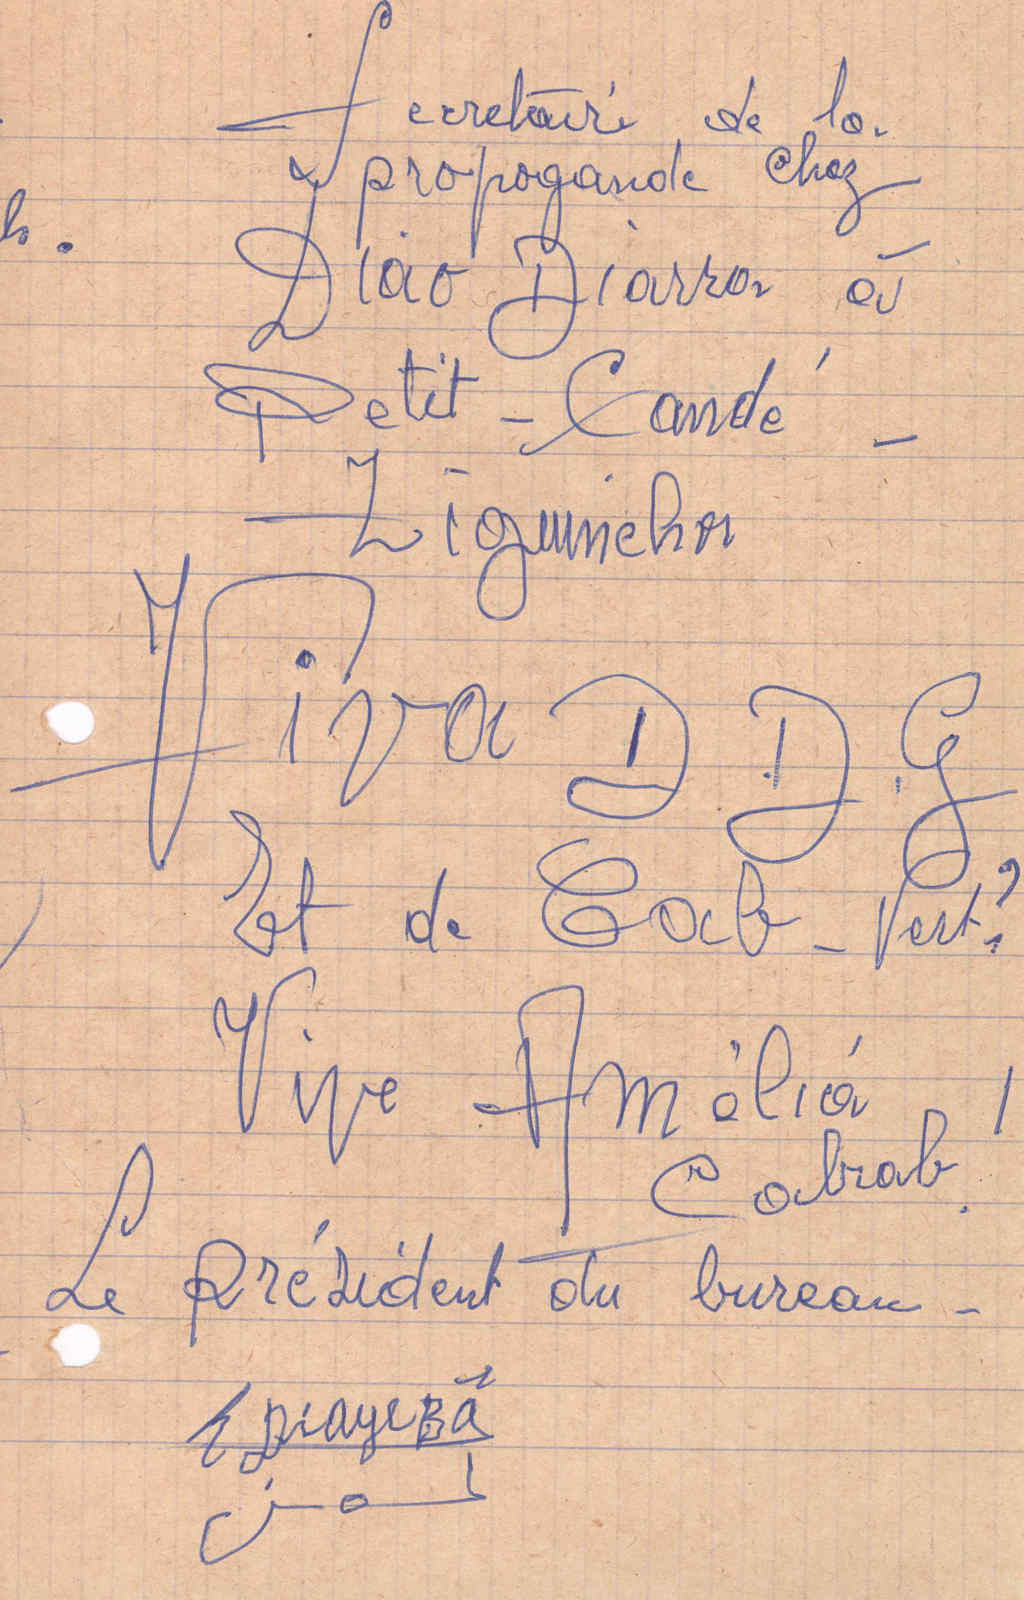 Secretairé de la
propogande chez
Diao Diarra à
Petit - Candé -
Ziguinchor
Viva D D.G
Et de Cab-Vert?
Vive Amélià !
Cabrab.
Le Président du bureau -